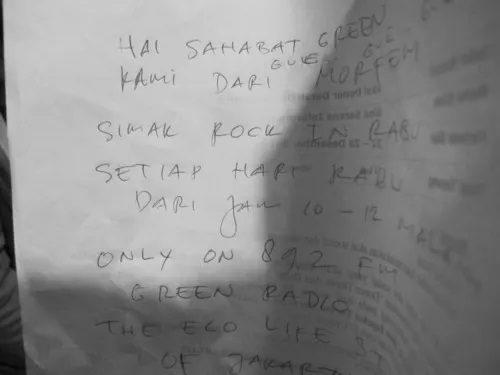 HAI SAHABAT GREEN
KAMI DARI MORFEM
SIMAK ROCK IN RABU
SETIAP HARI RABU
DARI JAM 10 - 12 MALAM
ONLY ON 89.2 FM
GREEN RADIO
THE ECO LIFE ST
OF JAKART